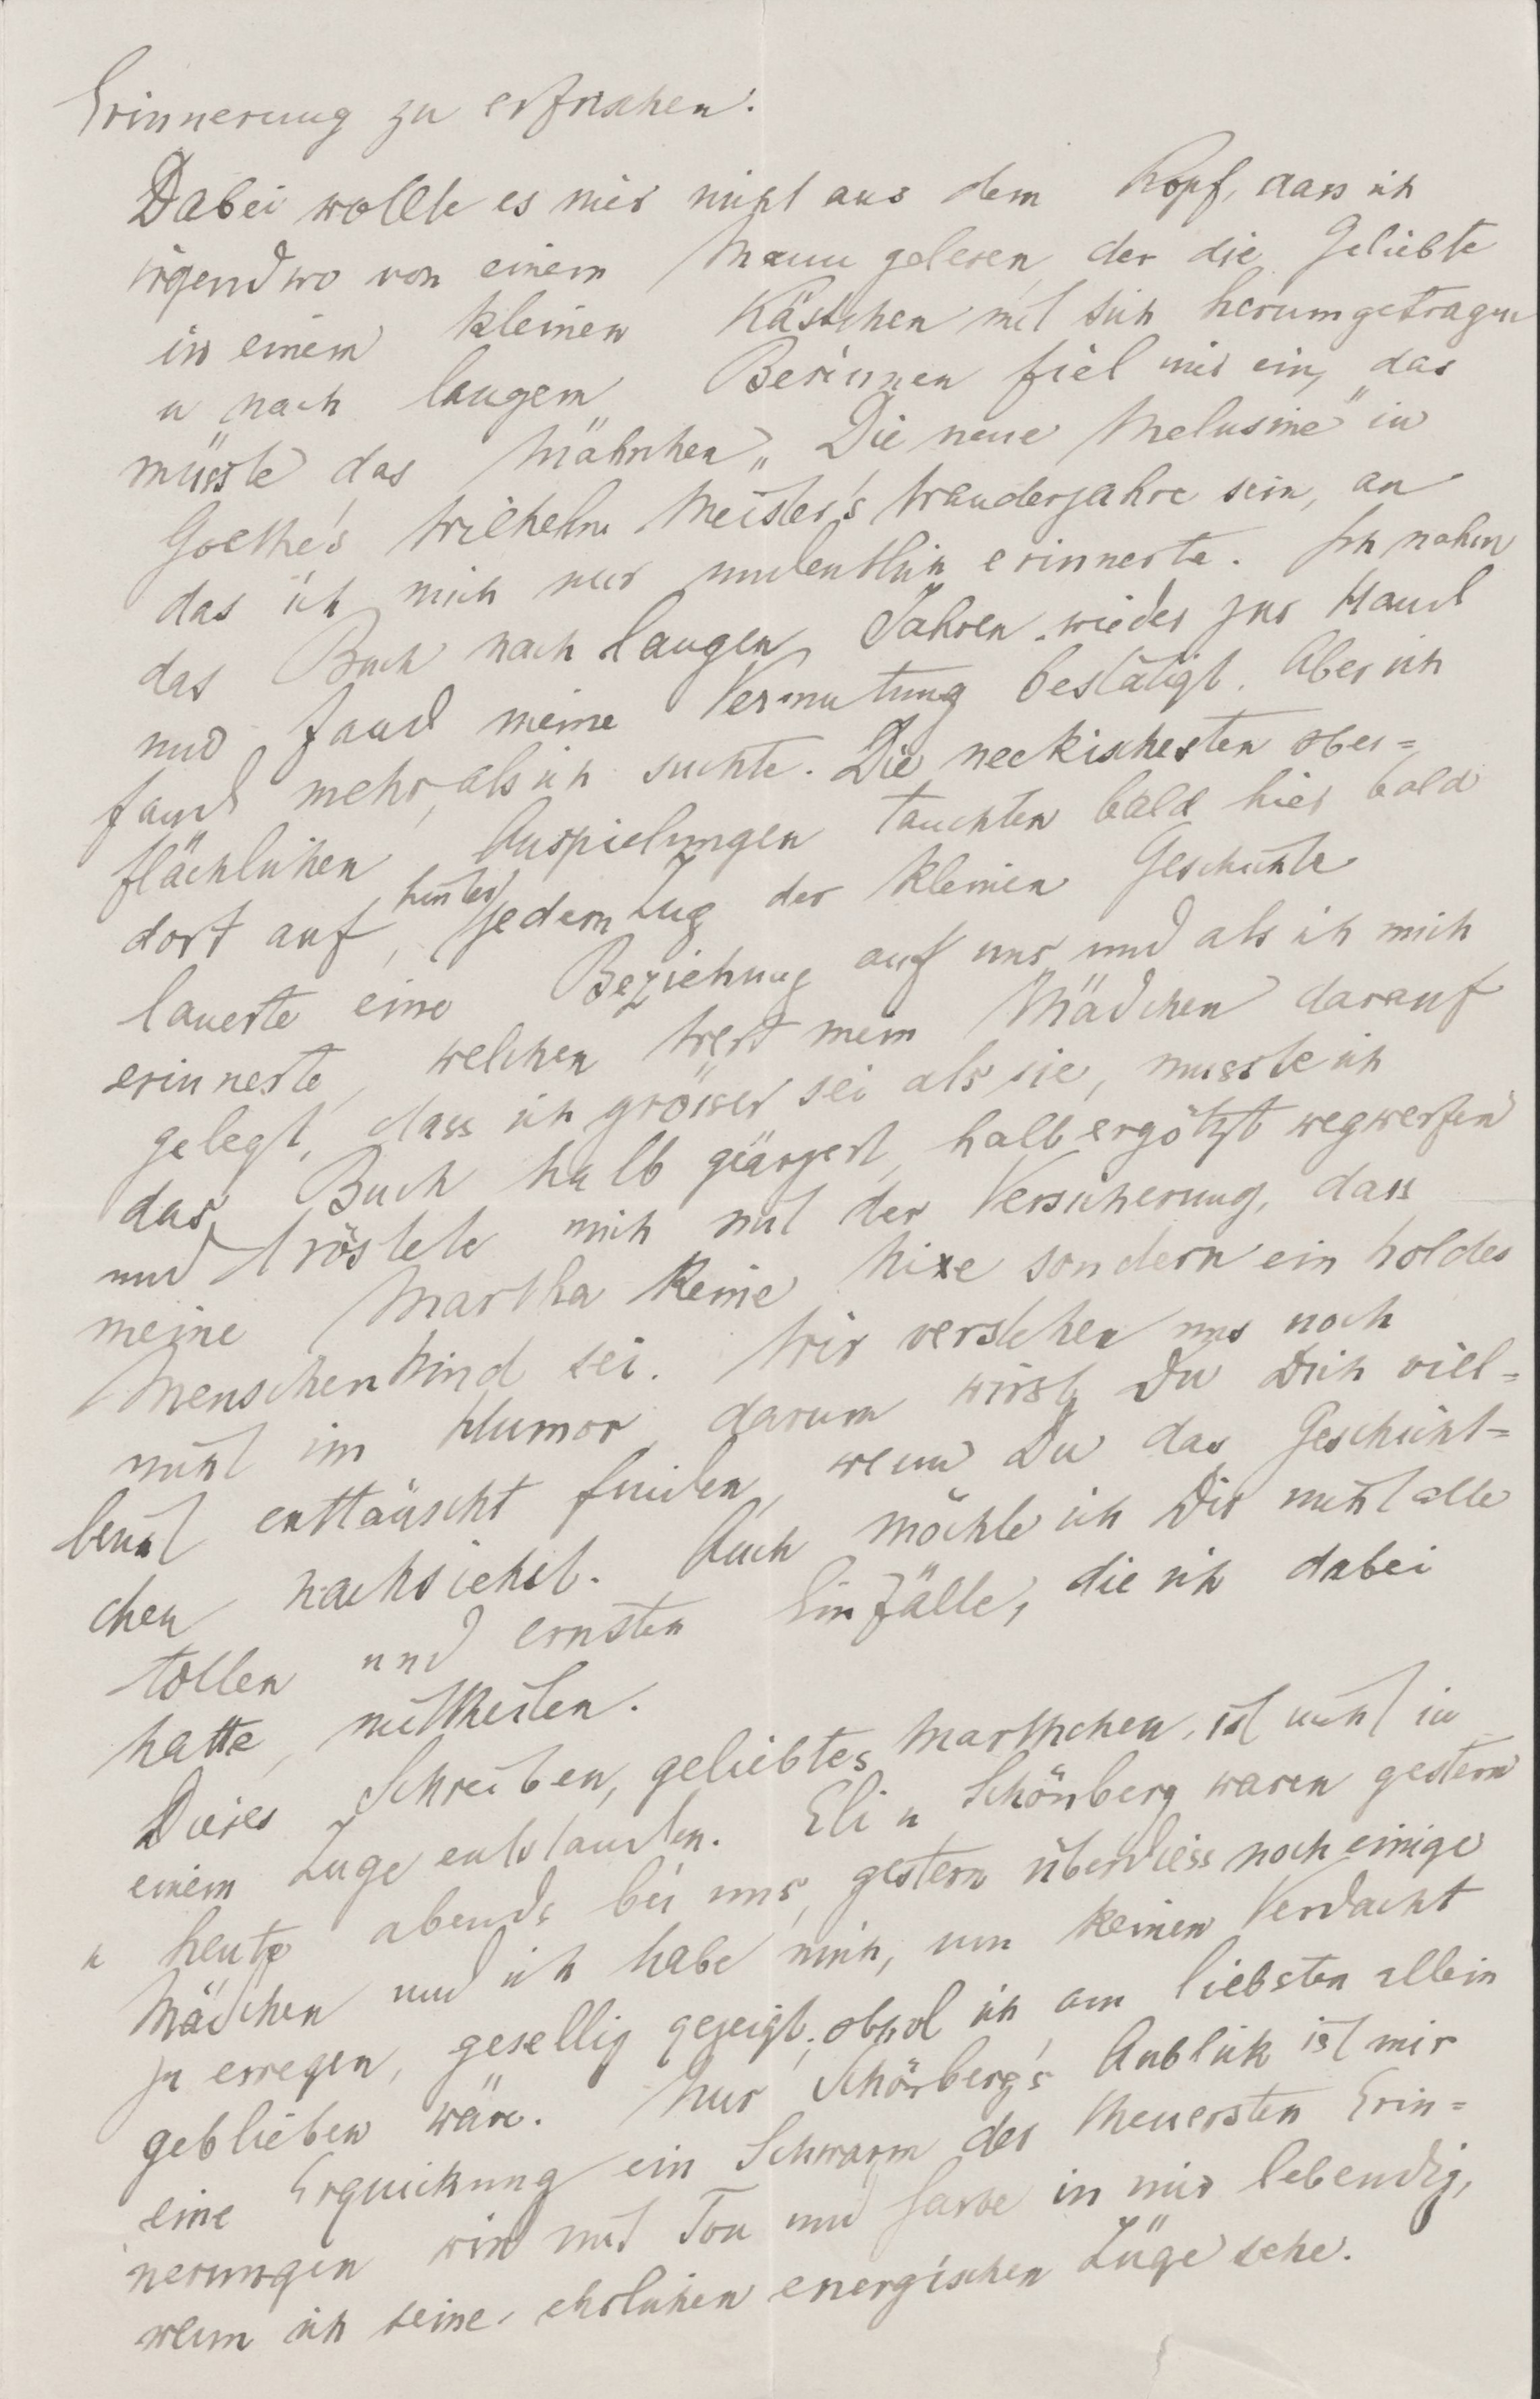 Erinnerung zu erfrischen.
Dabei wollte es mir nicht aus dem Kopf, dass ich
irgendwo von einem Mann gelesen, der die Geliebte
in einem kleinen Kästchen mit sich herumgetragen
u nach langem Besinnen fiel mir ein, das
müsste das Mährchen „Die neue Melusine" in
Goethe's Wilhelm Meister's Wanderjahre sein, an
das ich mich nur undeutlich erinnerte. Ich nahm
das Buch nach langen Jahren wieder zur Hand
und fand meine Vermutung bestätigt. Aber ich
fand mehr, als ich suchte. Die neckischesten ober=
flächlichen Anspielungen tauchten bald hier bald
dort auf, hinter jedem Zug der kleinen Geschichte
lauerte eine Beziehung auf uns und als ich mich
erinnerte, welchen Wert mein Mädchen darauf
gelegt, dass ich grösser sei als sie, musste ich
das Buch halb geärgert, halb ergötzt wegwerfen
und tröstete mich mit der Versicherung, dass
meine Martha keine Nixe sondern ein holdes
Menschenkind sei. Wir verstehen uns noch
nicht im Humor, darum wirst Du Dich viel=
leicht enttäuscht finden, wenn Du das Geschicht=
chen nachsiehst. Auch möchte ich Dir nicht alle
tollen und ernsten Einfälle, die ich dabei
hatte, mittheilen.
Dieses Schreiben, geliebtes Marthchen, ist nicht in
einem Zuge entstanden. Eli u Schönberg waren gestern
u heute abends bei uns, gestern überdiess noch einige
Mädchen und ich habe mich, um keinen Verdacht
zu erregen, gesellig gezeigt, obwol ich am liebsten allein
geblieben wäre. Nur Schönberg's Anblick ist mir
eine Erquickung ein Schwarm der theuersten Erin=
nerungen wird mit Ton und Farbe in mir lebendig,
wenn ich seine ehrlichen energischen Züge sehe.